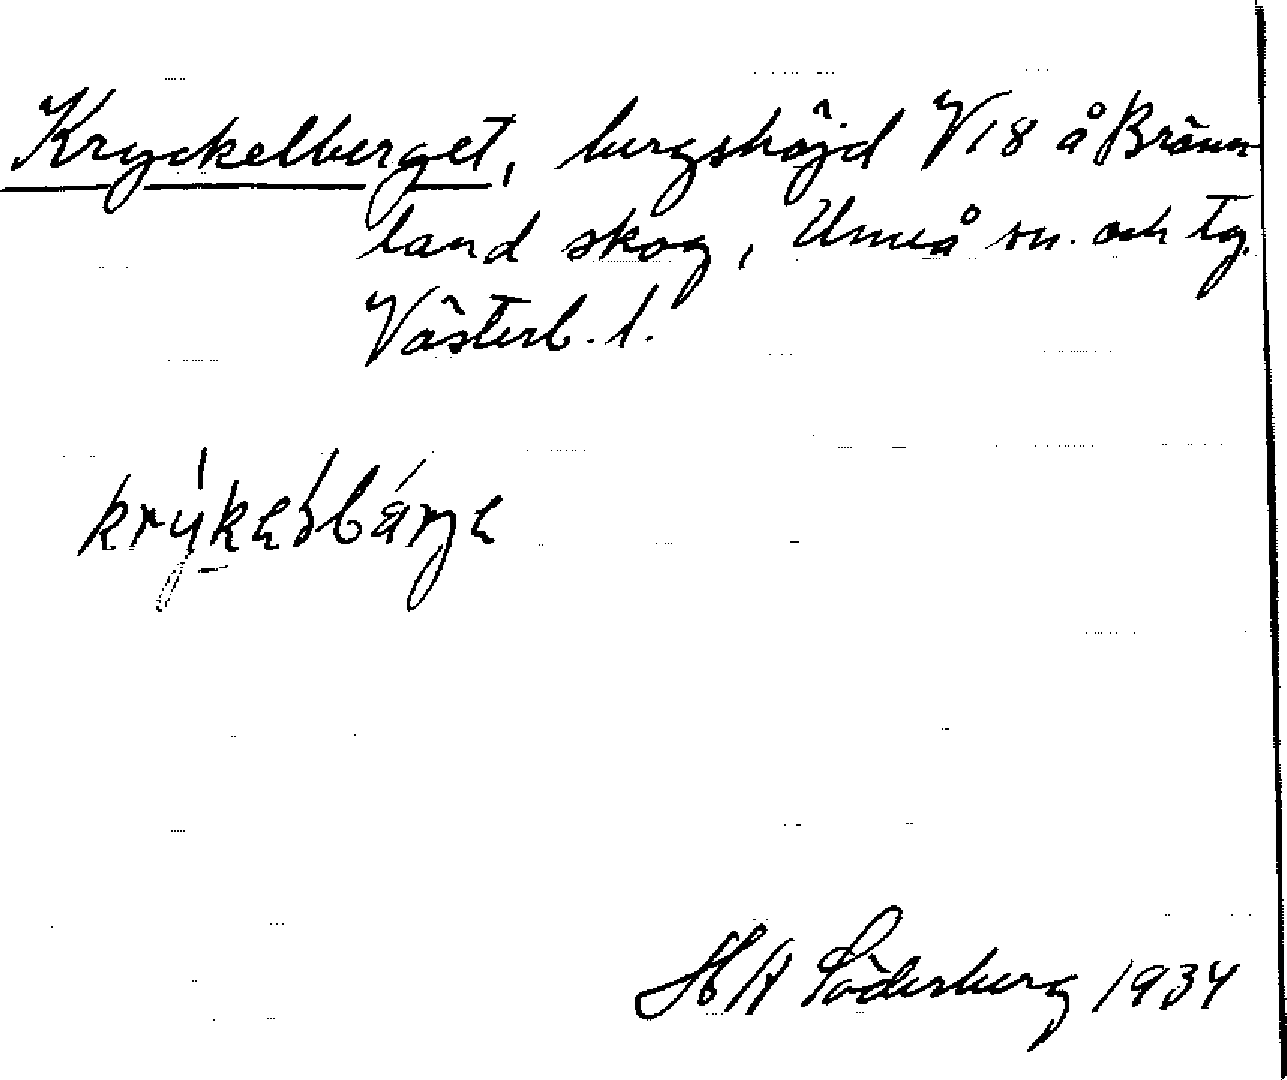 Kryckelberget, bergshöjd V18 å Bränn
land skog, Umeå sn. och tg.
Västerb. l.
H A Söderberg 1934